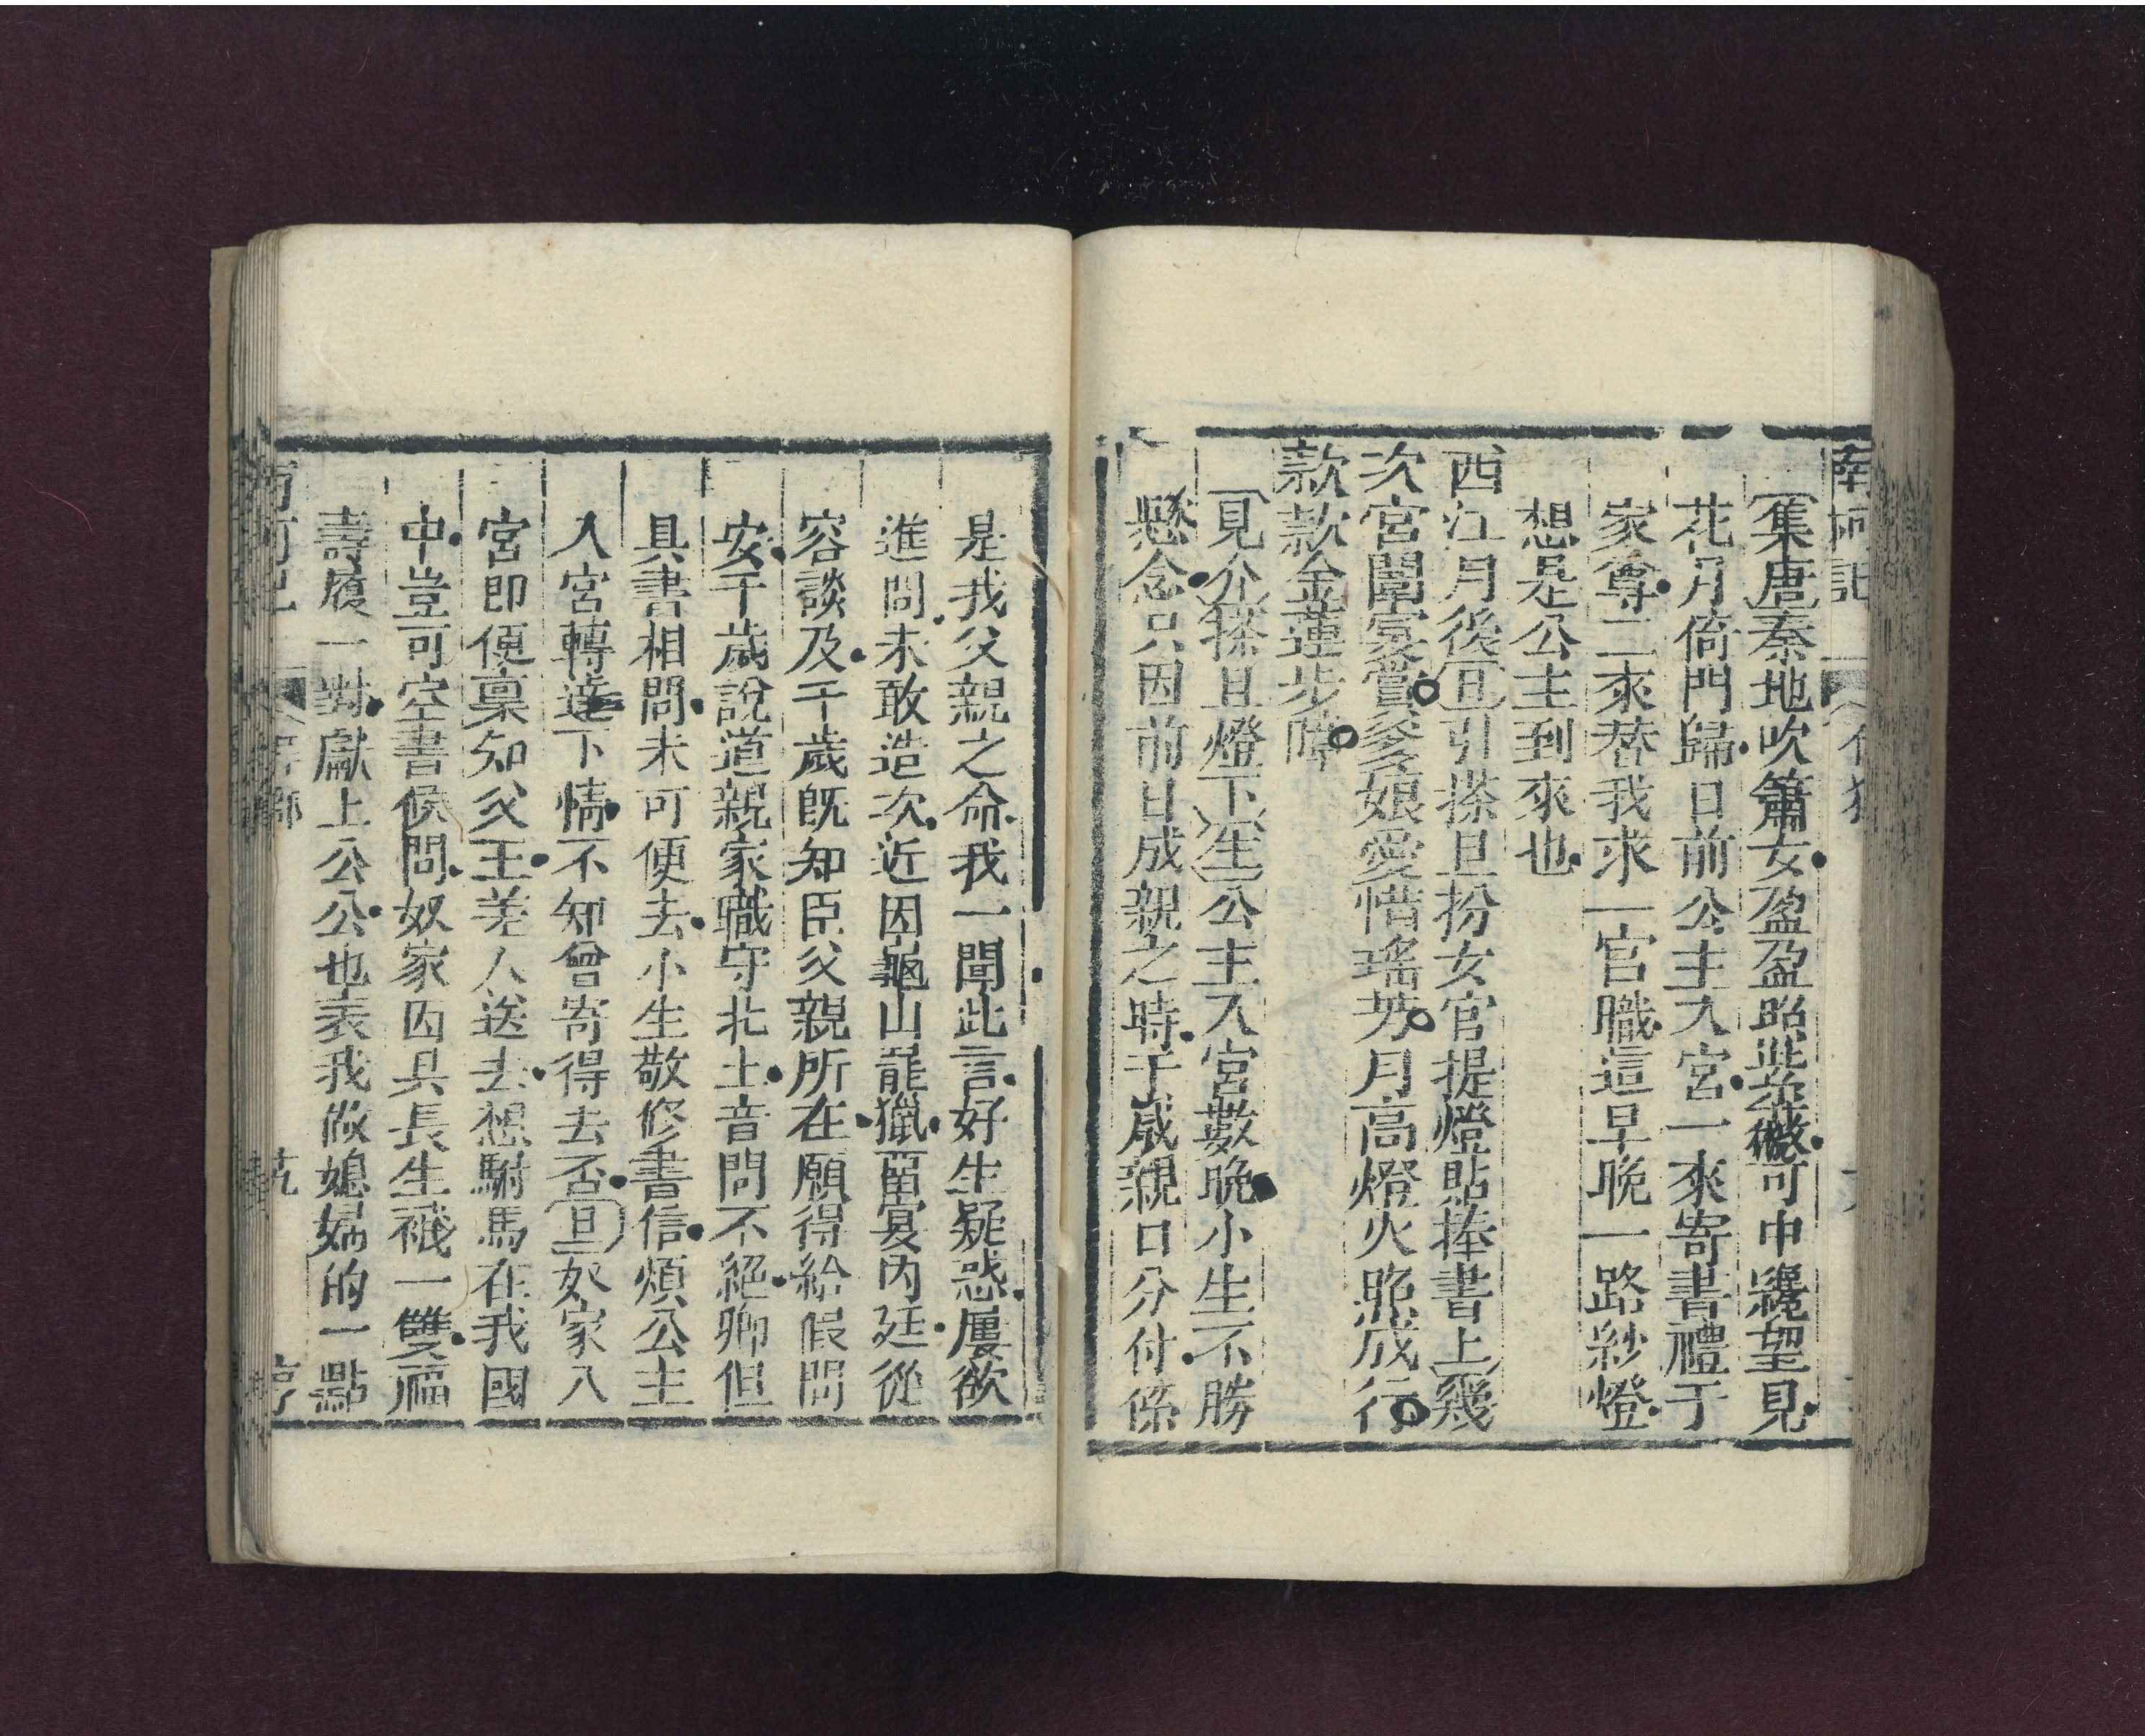 南柯記
集唐秦地吹簫女盈盈照紫薇可中纔望見
花月倚門歸日前公主入宮一來寄書禮于
家尊二來替我求一官職這早晚一路紗燈
想是公主到來也
西江月後旦引搽旦扮女官提燈貼捧書上幾
次宮闈宴賞爹娘愛惜瑤芳月高燈火照成行
款款金蓮步障
見介搽旦燈下生公主入宮數晚小生不勝
懸念只因前日成親之時千歲親口分付係
是我父親之命我一聞此言好生疑惑屢欲
進問未敢造次近因龜山罷獵畱宴內廷從
容談及千歲旣知臣父親所在願得給假問
安千歲說道親家職守北土音問不絕卿但
具書相問未可便去小生敬修書信煩公主
入宮轉達下情不知曾寄得去否旦奴家入
宮即便稟知父王差人送去想駙馬在我國
中豈可空書候問奴家因具長生襪一雙福
壽履一對獻上公公也表我做媳婦的一點